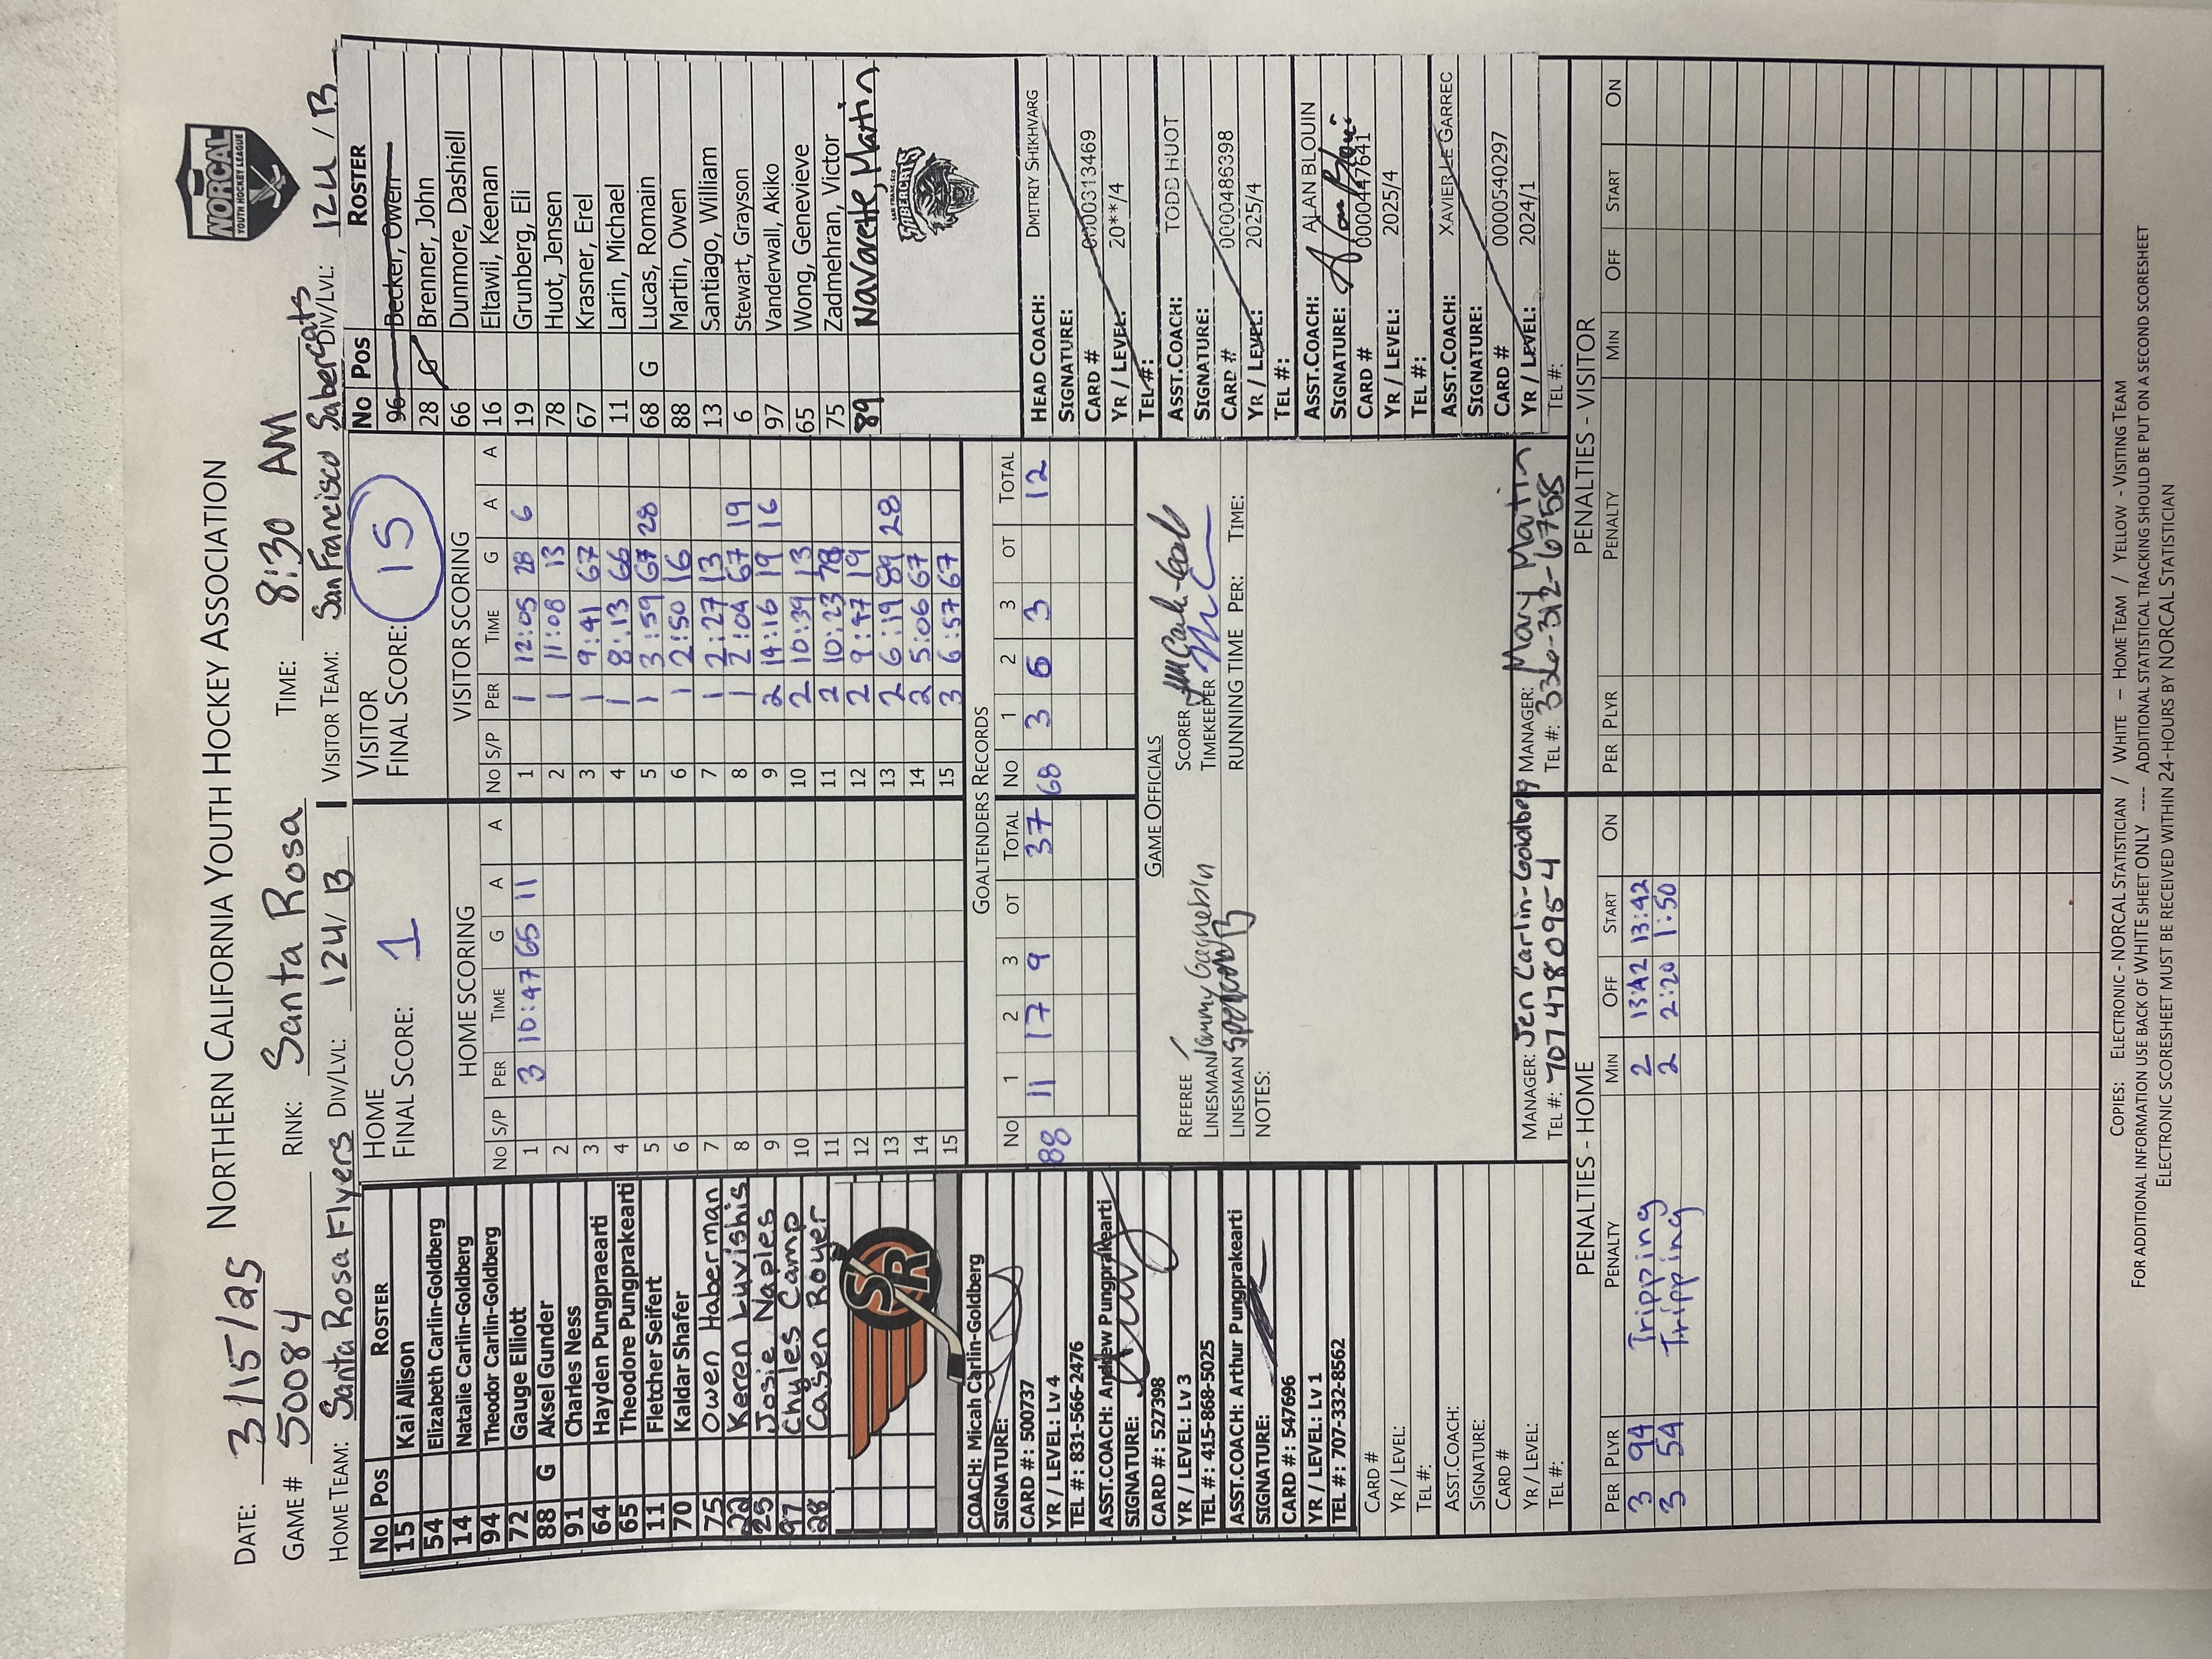 DATE: 3/15/25 NORTHERN CALIFORNIA YOUTH HOCKEY ASSOCIATION
NORCAL
YOUTH HOCKEY LEAGUE
GAME # 50084 RINK: Santa Rosa TIME: 8:30 AM
HOME TEAM: Santa Rosa Flyers DIV/LVL: 12U/B VISITOR TEAM: San Francisco Sabercats DIV/LVL: 12U/B
No Pos ROSTER
15 Kai Allison
54 Elizabeth Carlin-Goldberg
14 Natalie Carlin-Goldberg
94 Theodor Carlin-Goldberg
72 Gauge Elliott
88 G Aksel Gunder
91 Charles Ness
64 Hayden Pungpraearti
65 Theodore Pungprakearti
11 Fletcher Seifert
70 Kaldar Shafer
75 Owen Haberman
22 Keren Luvishis
25 Josie Naples
97 Chyles Camp
28 Casen Royer
SR
COACH: Micah Carlin-Goldberg
SIGNATURE:
CARD #: 500737
YR / LEVEL: Lv 4
TEL #: 831-566-2476
ASST.COACH: Andrew Pungprakearti
SIGNATURE:
CARD #: 527398
YR / LEVEL: Lv 3
TEL #: 415-868-5025
ASST.COACH: Arthur Pungprakearti
SIGNATURE:
CARD #: 547696
YR / LEVEL: Lv 1
TEL #: 707-332-8562
CARD #
YR / LEVEL:
TEL #:
ASST.COACH:
SIGNATURE:
CARD #
YR / LEVEL:
TEL #:
HOME
FINAL SCORE: 1
HOME SCORING
No S/P PER TIME G A A
1 3 10:47 65 11
2
3
4
5
6
7
8
9
10
11
12
13
14
15
VISITOR
FINAL SCORE: 15
VISITOR SCORING
No S/P PER TIME G A A
1 1 12:05 28 6
2 1 11:08 13
3 1 9:41 67
4 1 8:13 66
5 1 3:59 67 28
6 1 2:50 16
7 1 2:27 13
8 1 2:04 67 19
9 2 14:16 19 16
10 2 10:39 13
11 2 10:23 78
12 2 9:47 19
13 2 6:19 89 28
14 2 5:06 67
15 3 6:57 67
GOALTENDERS RECORDS
No 1 2 3 OT TOTAL No 1 2 3 OT TOTAL
88 11 17 9 37 68 3 6 3 12
GAME OFFICIALS
REFEREE
LINESMAN Tammy Gagnebin
LINESMAN
NOTES:
SCORER
TIMEKEEPER
RUNNING TIME PER: TIME:
MANAGER: Jen Carlin-Goldberg MANAGER: Mary Martin
TEL #: 707 478 095-4 TEL #: 336-312-6758
No Pos ROSTER
96 Becker, Owen
28 Brenner, John
66 Dunmore, Dashiell
16 Eltawil, Keenan
19 Grunberg, Eli
78 Huot, Jensen
67 Krasner, Erel
11 Larin, Michael
68 G Lucas, Romain
88 Martin, Owen
13 Santiago, William
6 Stewart, Grayson
97 Vanderwall, Akiko
65 Wong, Genevieve
75 Zadmehran, Victor
89 Navarette, Martin
SAN FRANCISCO
SABERCATS
HEAD COACH: DMITRIY SHIKHVARG
SIGNATURE:
CARD # 0000313469
YR / LEVEL: 20**/4
TEL #:
ASST.COACH: TODD HUOT
SIGNATURE:
CARD # 0000486398
YR / LEVEL: 2025/4
TEL #:
ASST.COACH: ALAN BLOUIN
SIGNATURE: Alan Blouin
CARD # 0000447641
YR / LEVEL: 2025/4
TEL #:
ASST.COACH: XAVIER LE GARREC
SIGNATURE:
CARD # 0000540297
YR / LEVEL: 2024/1
TEL #:
PENALTIES - HOME
PER PLYR PENALTY MIN OFF START ON
3 94 Tripping 2 13:42 13:42
3 54 Tripping 2 2:20 1:50
PENALTIES - VISITOR
PER PLYR PENALTY MIN OFF START ON
COPIES: ELECTRONIC - NORCAL STATISTICIAN / WHITE – HOME TEAM / YELLOW - VISITING TEAM
FOR ADDITIONAL INFORMATION USE BACK OF WHITE SHEET ONLY ---- ADDITIONAL STATISTICAL TRACKING SHOULD BE PUT ON A SECOND SCORESHEET
ELECTRONIC SCORESHEET MUST BE RECEIVED WITHIN 24-HOURS BY NORCAL STATISTICIAN